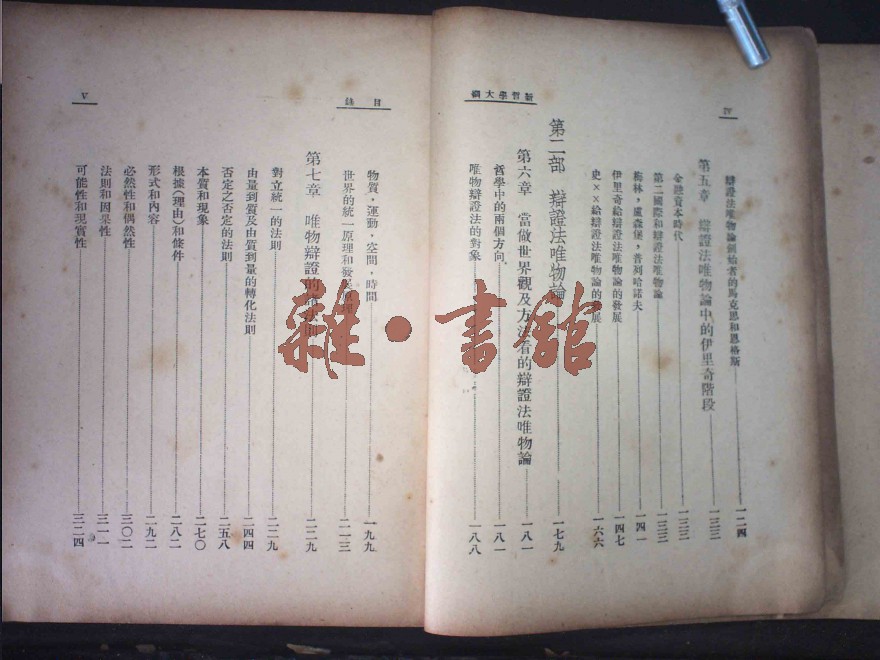 新哲學大綱
IV
辯證法唯物論創始者的馬克思和恩格斯 一二四
第五章 辯證法唯物論中的伊里奇階段 一三三
金融資本時代 一三三
第二國際和辯證法唯物論 一三三
梅林，盧森堡，普列哈諾夫 一四一
伊里奇給辯證法唯物論的發展 一四七
史××給辯證法唯物論的發展 一六六
第二部 辯證法唯物論 一七九
第六章 當做世界觀及方法看的辯證法唯物論 一八一
哲學中的兩個方向 一八一
唯物辯證法的對象 一八八
目錄
V
物質・運動・空間・時間 一九九
世界的統一原理和發展原理 二一三
第七章 唯物辯證的諸法則 二二九
對立統一的法則 二二九
由量到質及由質到量的轉化法則 二四四
否定之否定的法則 二五八
本質和現象 二七〇
根據(理由)和條件 二八二
形式和內容 二九二
必然性和偶然性 三〇二
法則和因果性 三一一
可能性和現實性 三二四
雜・書館